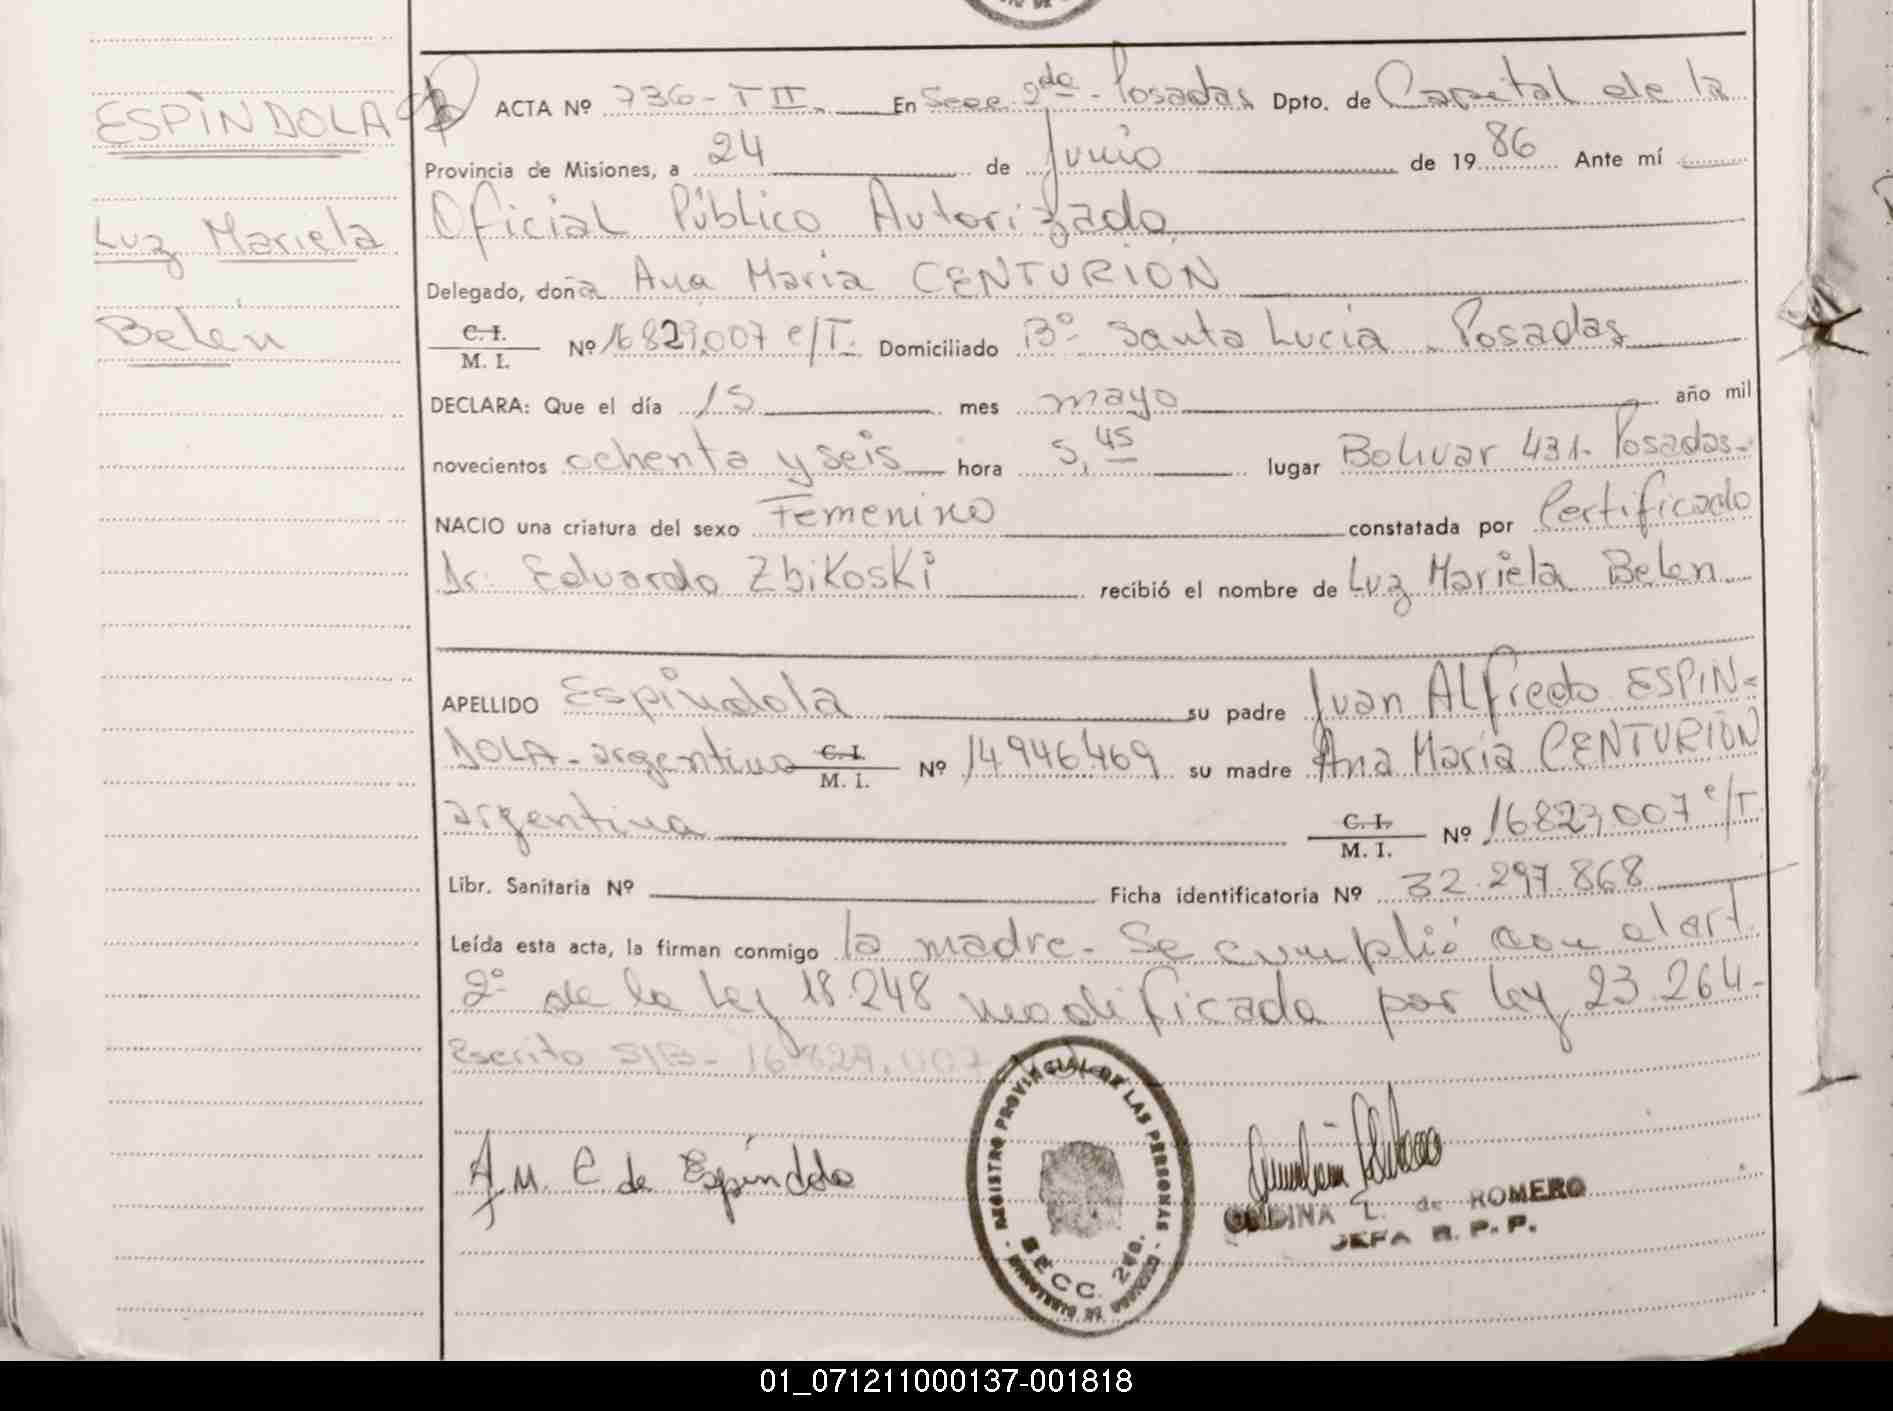 ESPINDOLA
Luz Mariela
Belén
ACTA Nº 736 - T II. En Secc. 2da - Posadas Dpto. de Capital de la
Provincia de Misiones, a 24 de Junio de 19 86 Ante mí
Oficial Público Autorizado
Delegado, doña Ana Maria CENTURION
C. I.
M. I. Nº 16829.007 e/T. Domiciliado Bº Santa Lucia - Posadas
DECLARA: Que el día 15 mes mayo año mil
novecientos ochenta y seis hora 5,45 lugar Bolivar 431 - Posadas -
NACIO una criatura del sexo Femenino constatada por Certificado
Dr. Eduardo Zbikoski recibió el nombre de Luz Mariela Belen
APELLIDO Espindola su padre Juan Alfredo ESPIN=
DOLA - argentino C. I. M. I. Nº 14946469 su madre Ana Maria CENTURION
argentina C. I. M. I. Nº 16823,007 e/T.
Libr. Sanitaria Nº Ficha identificatoria Nº 32.297.868
Leída esta acta, la firman conmigo la madre - Se cumplió con el art.
2º de la ley 18.248 modificada por ley 23.264 -
Escrito S/B - 16.829.007
A. M. C de Espíndola
REGISTRO PROVINCIAL DE LAS PERSONAS
SECC. 2da.
ONDINA L. de ROMERO
JEFA R. P. P.
01_071211000137-001818